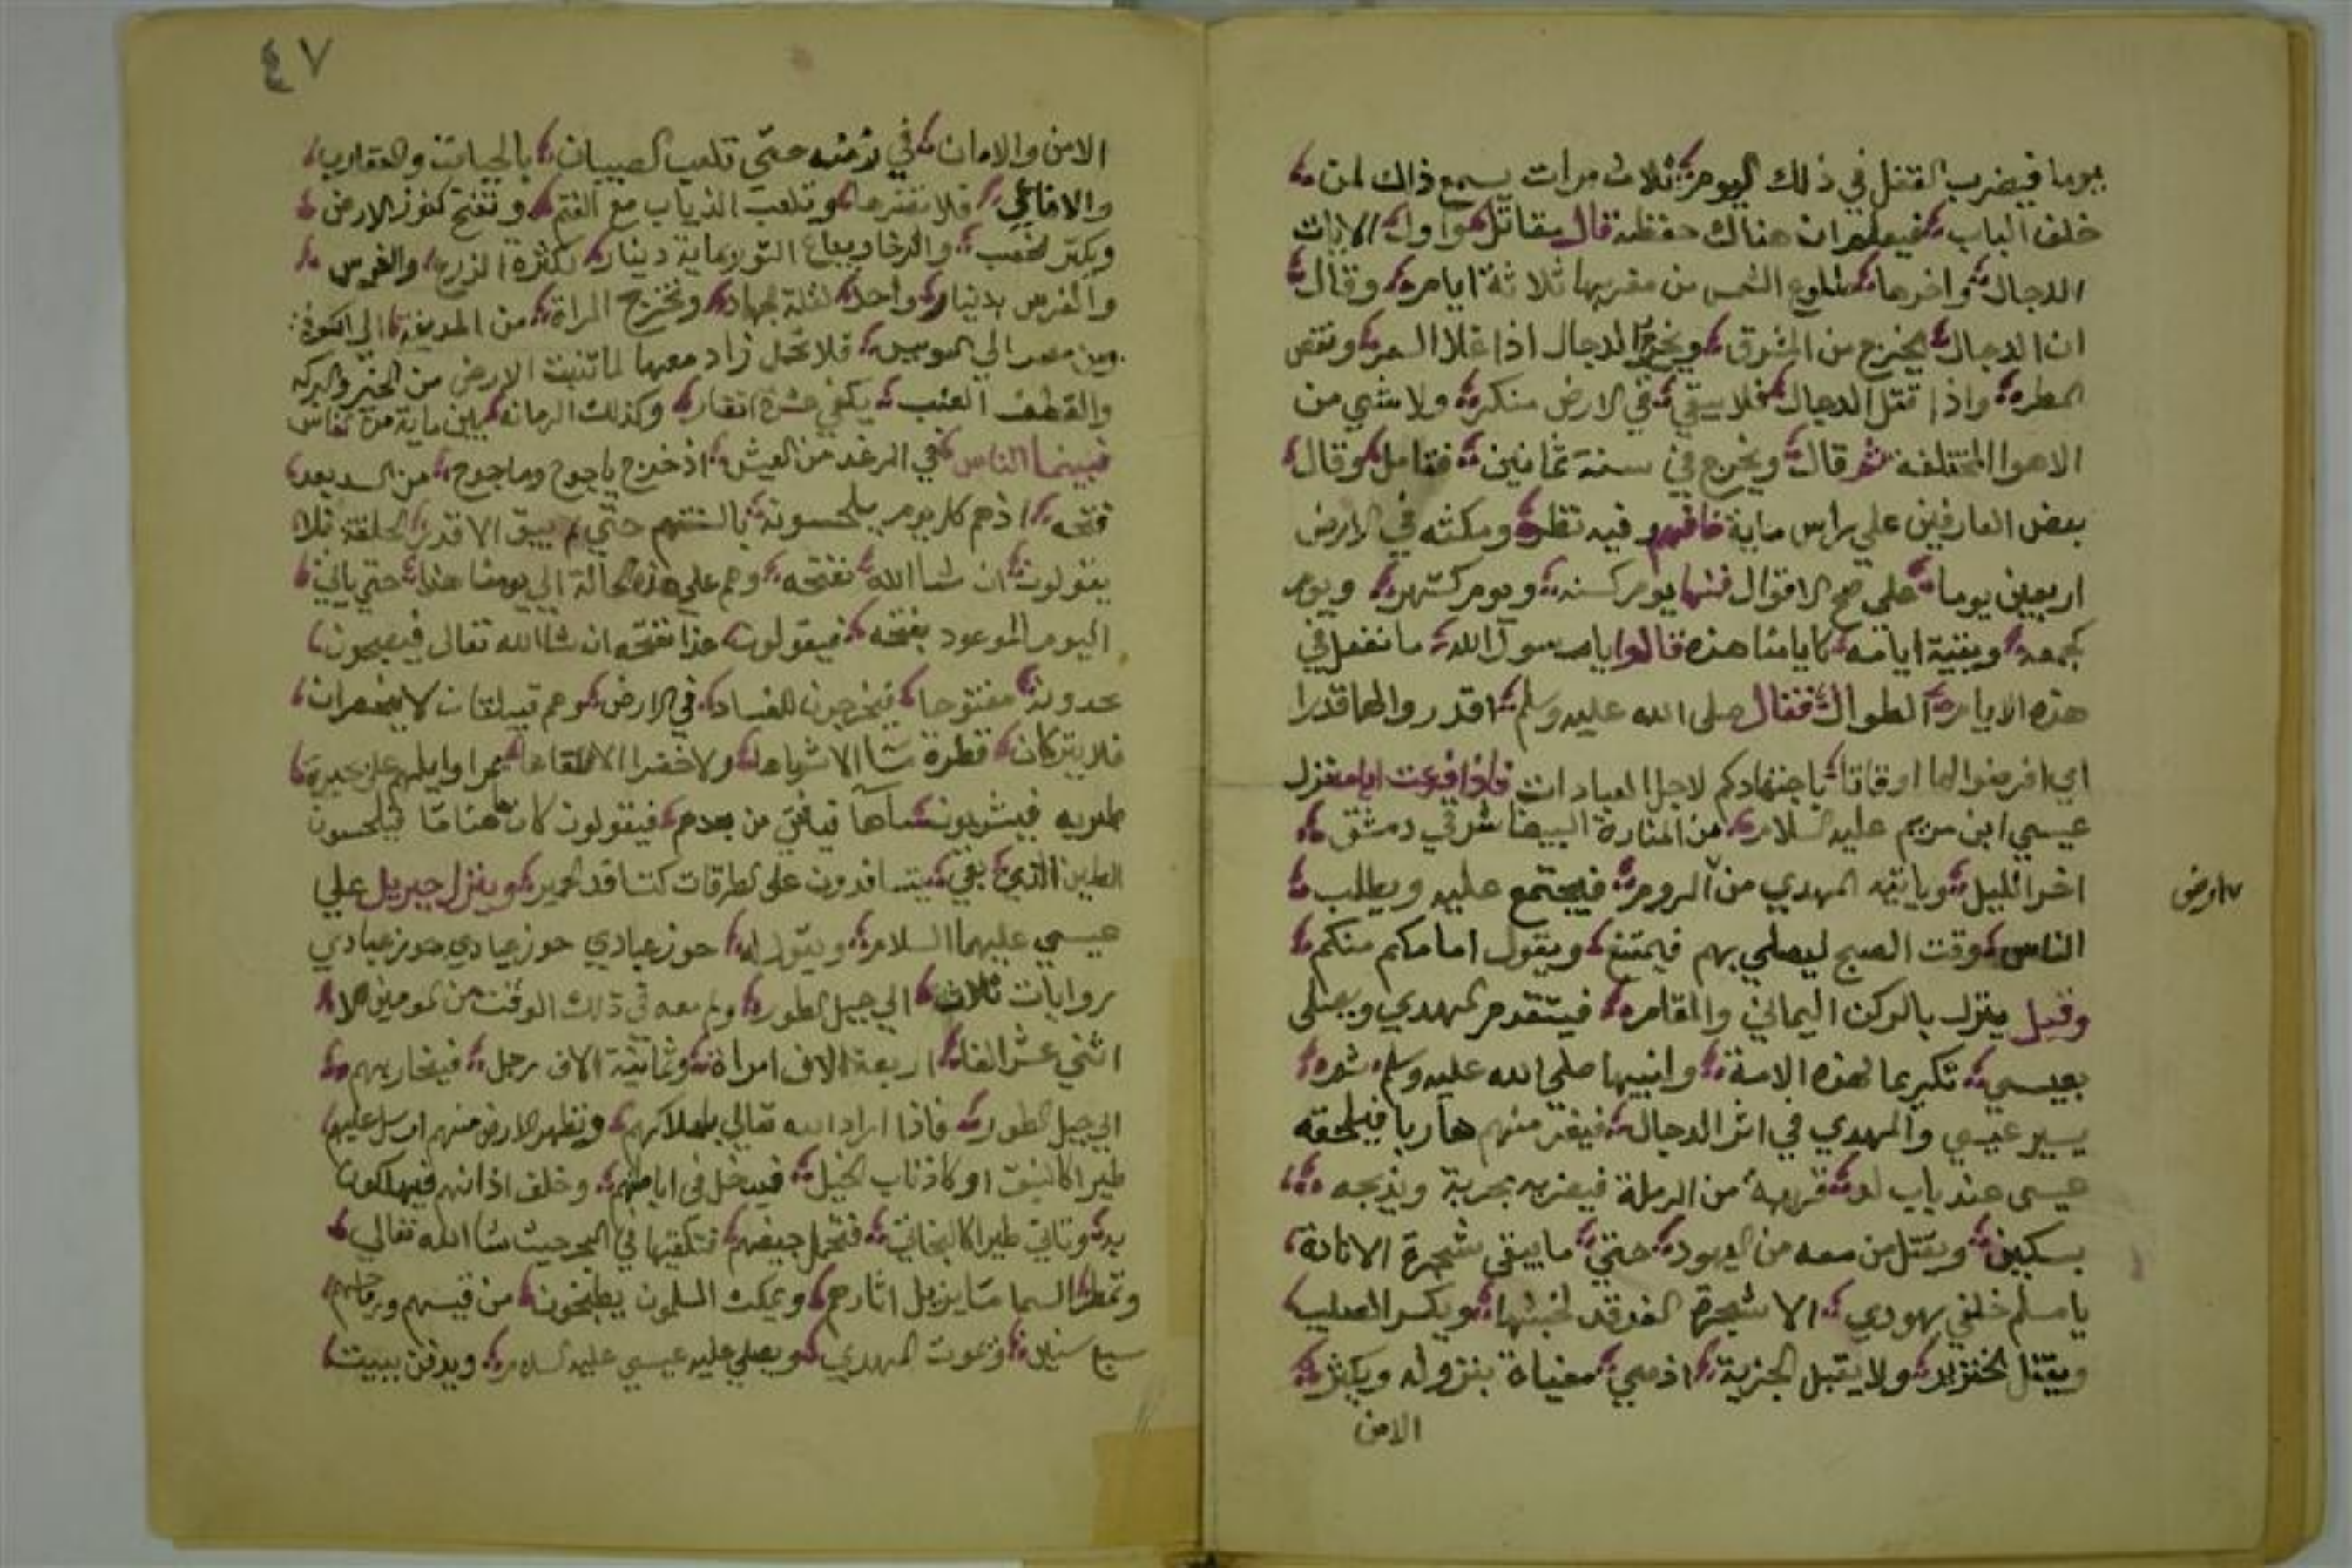 يوما فيضرب القفل في ذلك اليوم ثلاث مرات يسمع ذاك لمن
خلف الباب فيعلم ان هناك حفظه قال مقاتل واول الايات
الدجال واخرها طلوع الشمس من مغربها ثلاثة ايام وقال
ان الدجال يخرج من المشرق ويخرج الدجال اذا غلا السعر ونقص
المطر واذا قتل الدجال فلا يبقي في الارض منكر ولا شي من
الاهوا المختلفه ثم قال ويخرج في سنة ثمانين فقامل وقال
بعض العارفين علي راس ماية فافهم وفيه نظر ومكثه في الارض
اربعين يوما علي صح الاقوال فمنها يوم كسنه ويوم كشهر ويوم
كجمعه وبقية ايامه كايامنا هذه قالوا يا رسول الله ما نفعل في
هذه الايام الطوال فقال صلى الله عليه وسلم اقدروا لها قدرا
اي افرضوا لها اوقاتا باجتهادكم لاجل العبادات فاذا فرغت ايامه نزل
عيسي ابن مريم عليه السلام من المنارة البيضا شرقي دمشق
اخر الليل وياتيه المهدي من الروم فيجتمع عليه ويطلب
الناس وقت الصبح ليصلي بهم فيمتنع ويقول امامكم منكم
وقيل ينزل بالركن اليماني والمقام فيتقدم المهدي ويصلى
بعيسي تكريما لهذه الامة وانبيها صلي الله عليه وسلم ثم
يسير عيسي والمهدي في اثر الدجال فيفر منهم هاربا فيلحقه
عيسى عند باب لد قريبة من الرملة فيضربه بحربة ويذبحه
بسكين ويقتل من معه من اليهود حتي ما يبقى شجرة الا نادة
يا مسلم خلفي يهودي الا شجرة الغرقد لخبثها ويكسر الصليب
ويقتل الخنزير ولا يقبل الجزية اذ هي مغياة بنزوله ويكثر
الامن
٤٧
الامن والامان في زمنه حتى تلعب الصبيان بالحيات والعقارب
والافاعي فلا تضرها وتلعب الذياب مع الغنم وتفتح كنوز الارض
ويكثر الخصب والرخا ويباع الثور بماية دينار لكثرة الزرع والغرس
والفرس بدينار واحد لقلة الجهاد وتخرج المراة من المدينة الي الكوفة
ومن مصر الي السويس فلا تحمل زاد معها لما تنبت الارض من الخير والبركه
والقطف العنب يكفي عشرة انفار وكذلك الرمانه بين ماية من الناس
فبينما الناس في الرغد من العيش اذ خرج ياجوج وماجوج من السد بعد
فتحه اذ هم كل يوم يلحسونه بالسنتهم حتي لم يبق الا قدر الحلقة فلا
يقولون ان شا الله نفتحه وهم علي هذه الحالة الي يومنا هذا حتي ياتي
اليوم الموعود بفتحه فيقولون غدا نفتحه ان شا الله تعالى فيصبحون
يجدونه مفتوحا فيخرجون للفساد في الارض وهم قبيلتان لا ينحصران
فلا يتركان قطرة ما الا شرباها ولا خضرا الا قلعاها يمر اوايلهم علي بحيرة
طبريه فيشربون ماها فياتي من بعدهم فيقولون كان هنا ما فيلحسون
الطين الذي بقي يتسافدون على الطرقات كتسافد الحمير وينزل جبريل علي
عيسي عليهما السلام ويقول له حوز عبادي حوز عبادي حوز عبادي
روايات ثلاث الي جبل الطور ولم معه في ذلك الوقت من المومنين الا
اثني عشر الفا اربعة الاف امراة وثمانية الاف رجل فينحاز بهم
الي جبل الطور فاذا اراد الله تعالي باهلاكهم وتطهر الارض منهم ارسل عليهم
طيرا كالنيق او كاذناب الخيل فيدخل في اباطهم وخلف اذانهم فيهلكون
به وتاتي طيرا كالبخاتي فتحمل جيفهم فتلقيها في البحر حيث شا الله تعالي
وتمطر السما ما يزيل اثارهم ويمكث المسلمون يطبخون من قسيهم ورماحهم
سبع سنين ويموت المهدي ويصلي عليه عيسي عليه السلام ويدفن ببيت